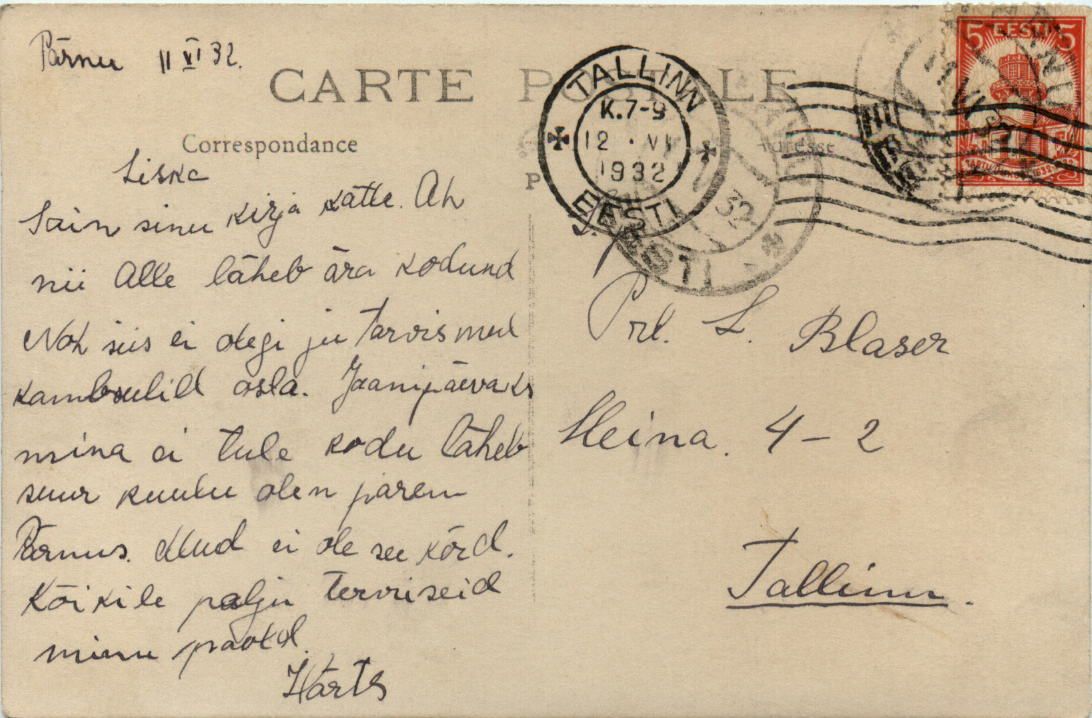 Pärnu 11 VI 32.
CARTE POSTALE
Correspondance
Adresse
5 EESTI 5
TALLINN
K. 7-9
12 · VI
1932
EESTI
Liska
Sain sinu kirja kätte. Ah
nii Alle läheb ära kodund
Noh siis ei olegi ju tarvis mul
osta. Jaanipäevaks
mina ei tule kodu läheb
suur kuulu olen parem
Pärnus. Muud ei ole see kõrd.
Kõikile palju terviseid
minu poold.
Prl. L. Blaser
Heina. 4-2
Tallinn.